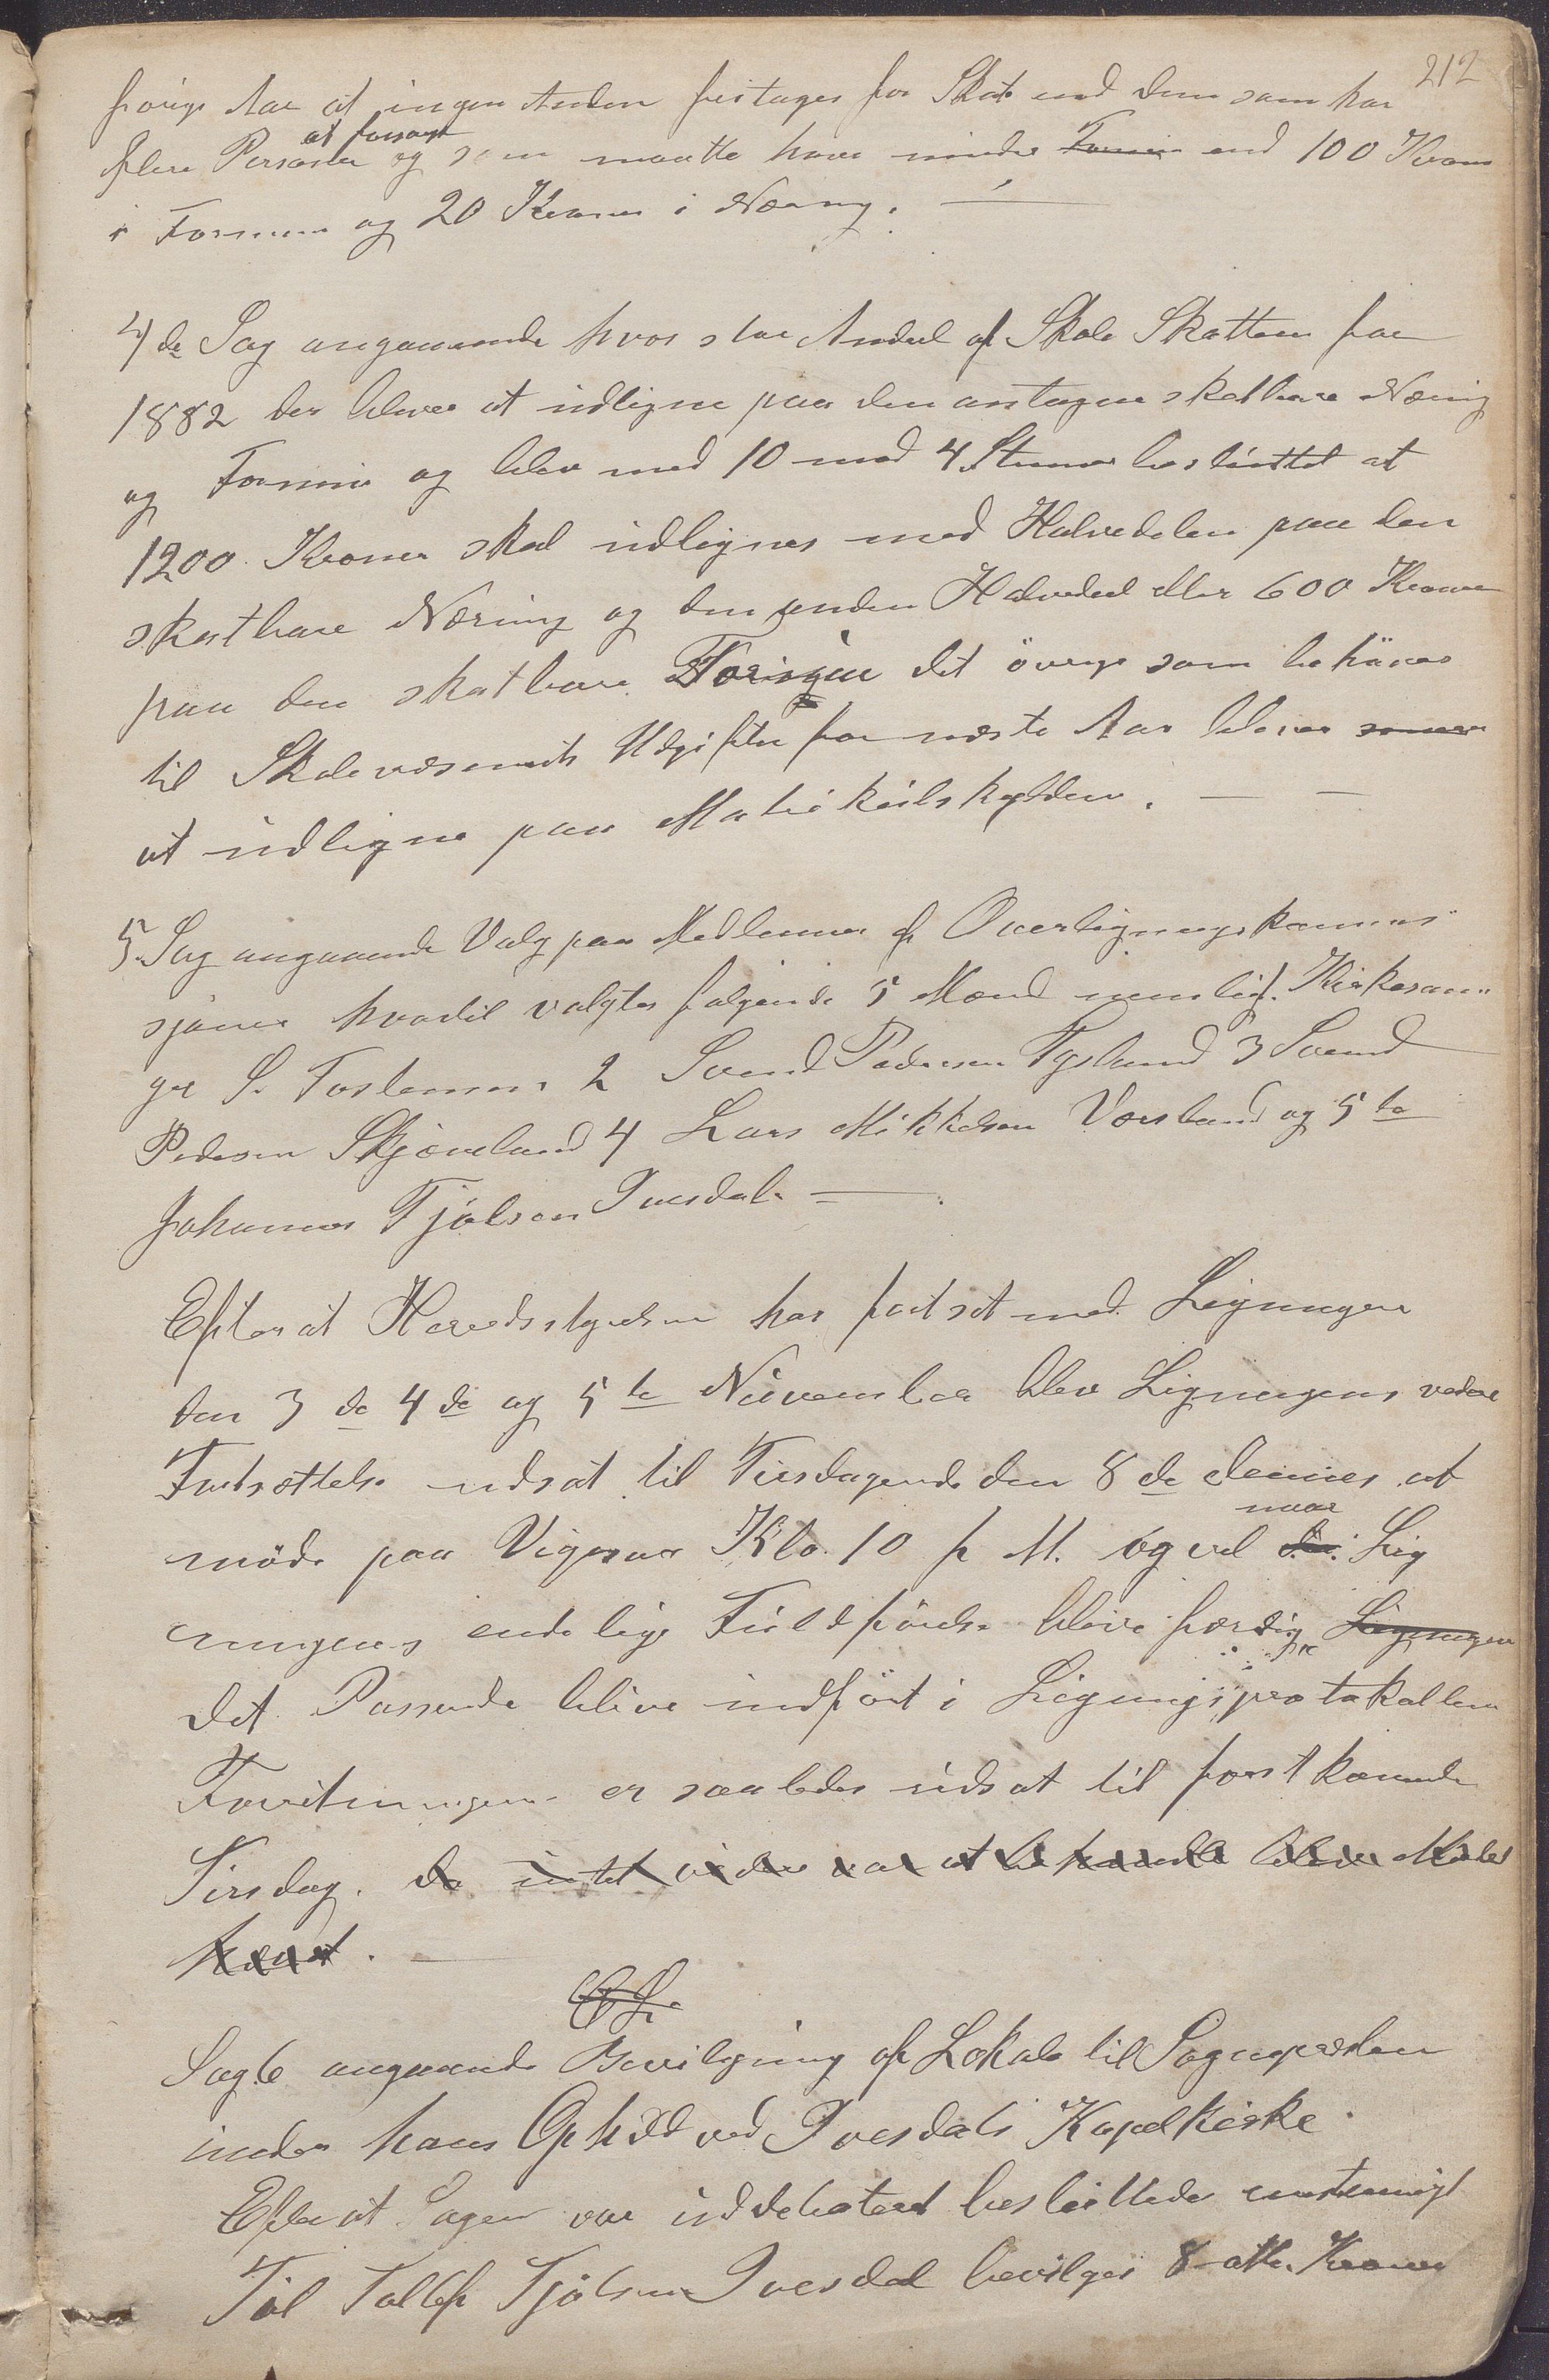 212
forige Aar at ingen Anden fritages for Skat end dem som har
at forsørge
flere Personer og som maatte have mindre Formue end 100 Kroner
i Formue og 20 Kroner i Næring.
4de Sag angaaende hvor stor Andeel af Skole Skatten for
1882 der bliver at udligne paa den antagne skatbare Næring
og Formue og blev med 10 mod 4 Stemmer besluttet at
1200 Kroner skal udlignes med Halvedelen paa den
skatbare Næring og den anden Halvedeel eller 600 Kroner
paa den skatbare det övrige som behöves
til Skolevæsenets Udgifter for næste Aar bliver
at udligne paa Matrikulskylden.
5. Sag angaaende Valg paa Medlemmer af Overligningskommis-
sjonen hvortil valgtes følgende 5 Mænd nemlig. Kirkesan-
ger S. Torstensen 2 Svend Pedersen Tysland 3 Svend
Pedersen Skjæveland 4 Lars Mikkelsen Værsland og 5te
Johannes Tjölsen Ivesdal.
Efter at Heredsstyrelsen har fortsat med Ligningen
den 3de 4de og 5te November blev Ligningens videre
Fortsættelse udsat til Tirsdagende den 8de dennes at
naar
möde paa Vigesaa Klo. 10 f M. og vil Lig
ningens endelige Fuldförelse blive færdig Ligningen
det Passerede blive indfört i Ligningsprotokollen
Forretningen er saaledes udsat til förstkomende
Tirsdag. da intet videre var at behandle blev Mödet
hævet.
Sag 6 angaaende Bevilgning af Lokale til Sognepresten
under hans Ophold ved Ivesdals Kapelkirke.
Efter at Sagen var uddebateret besluttedes enstemmigt
Til Tollef Tjölsen Ivesdal bevilges 8 otte Kroner